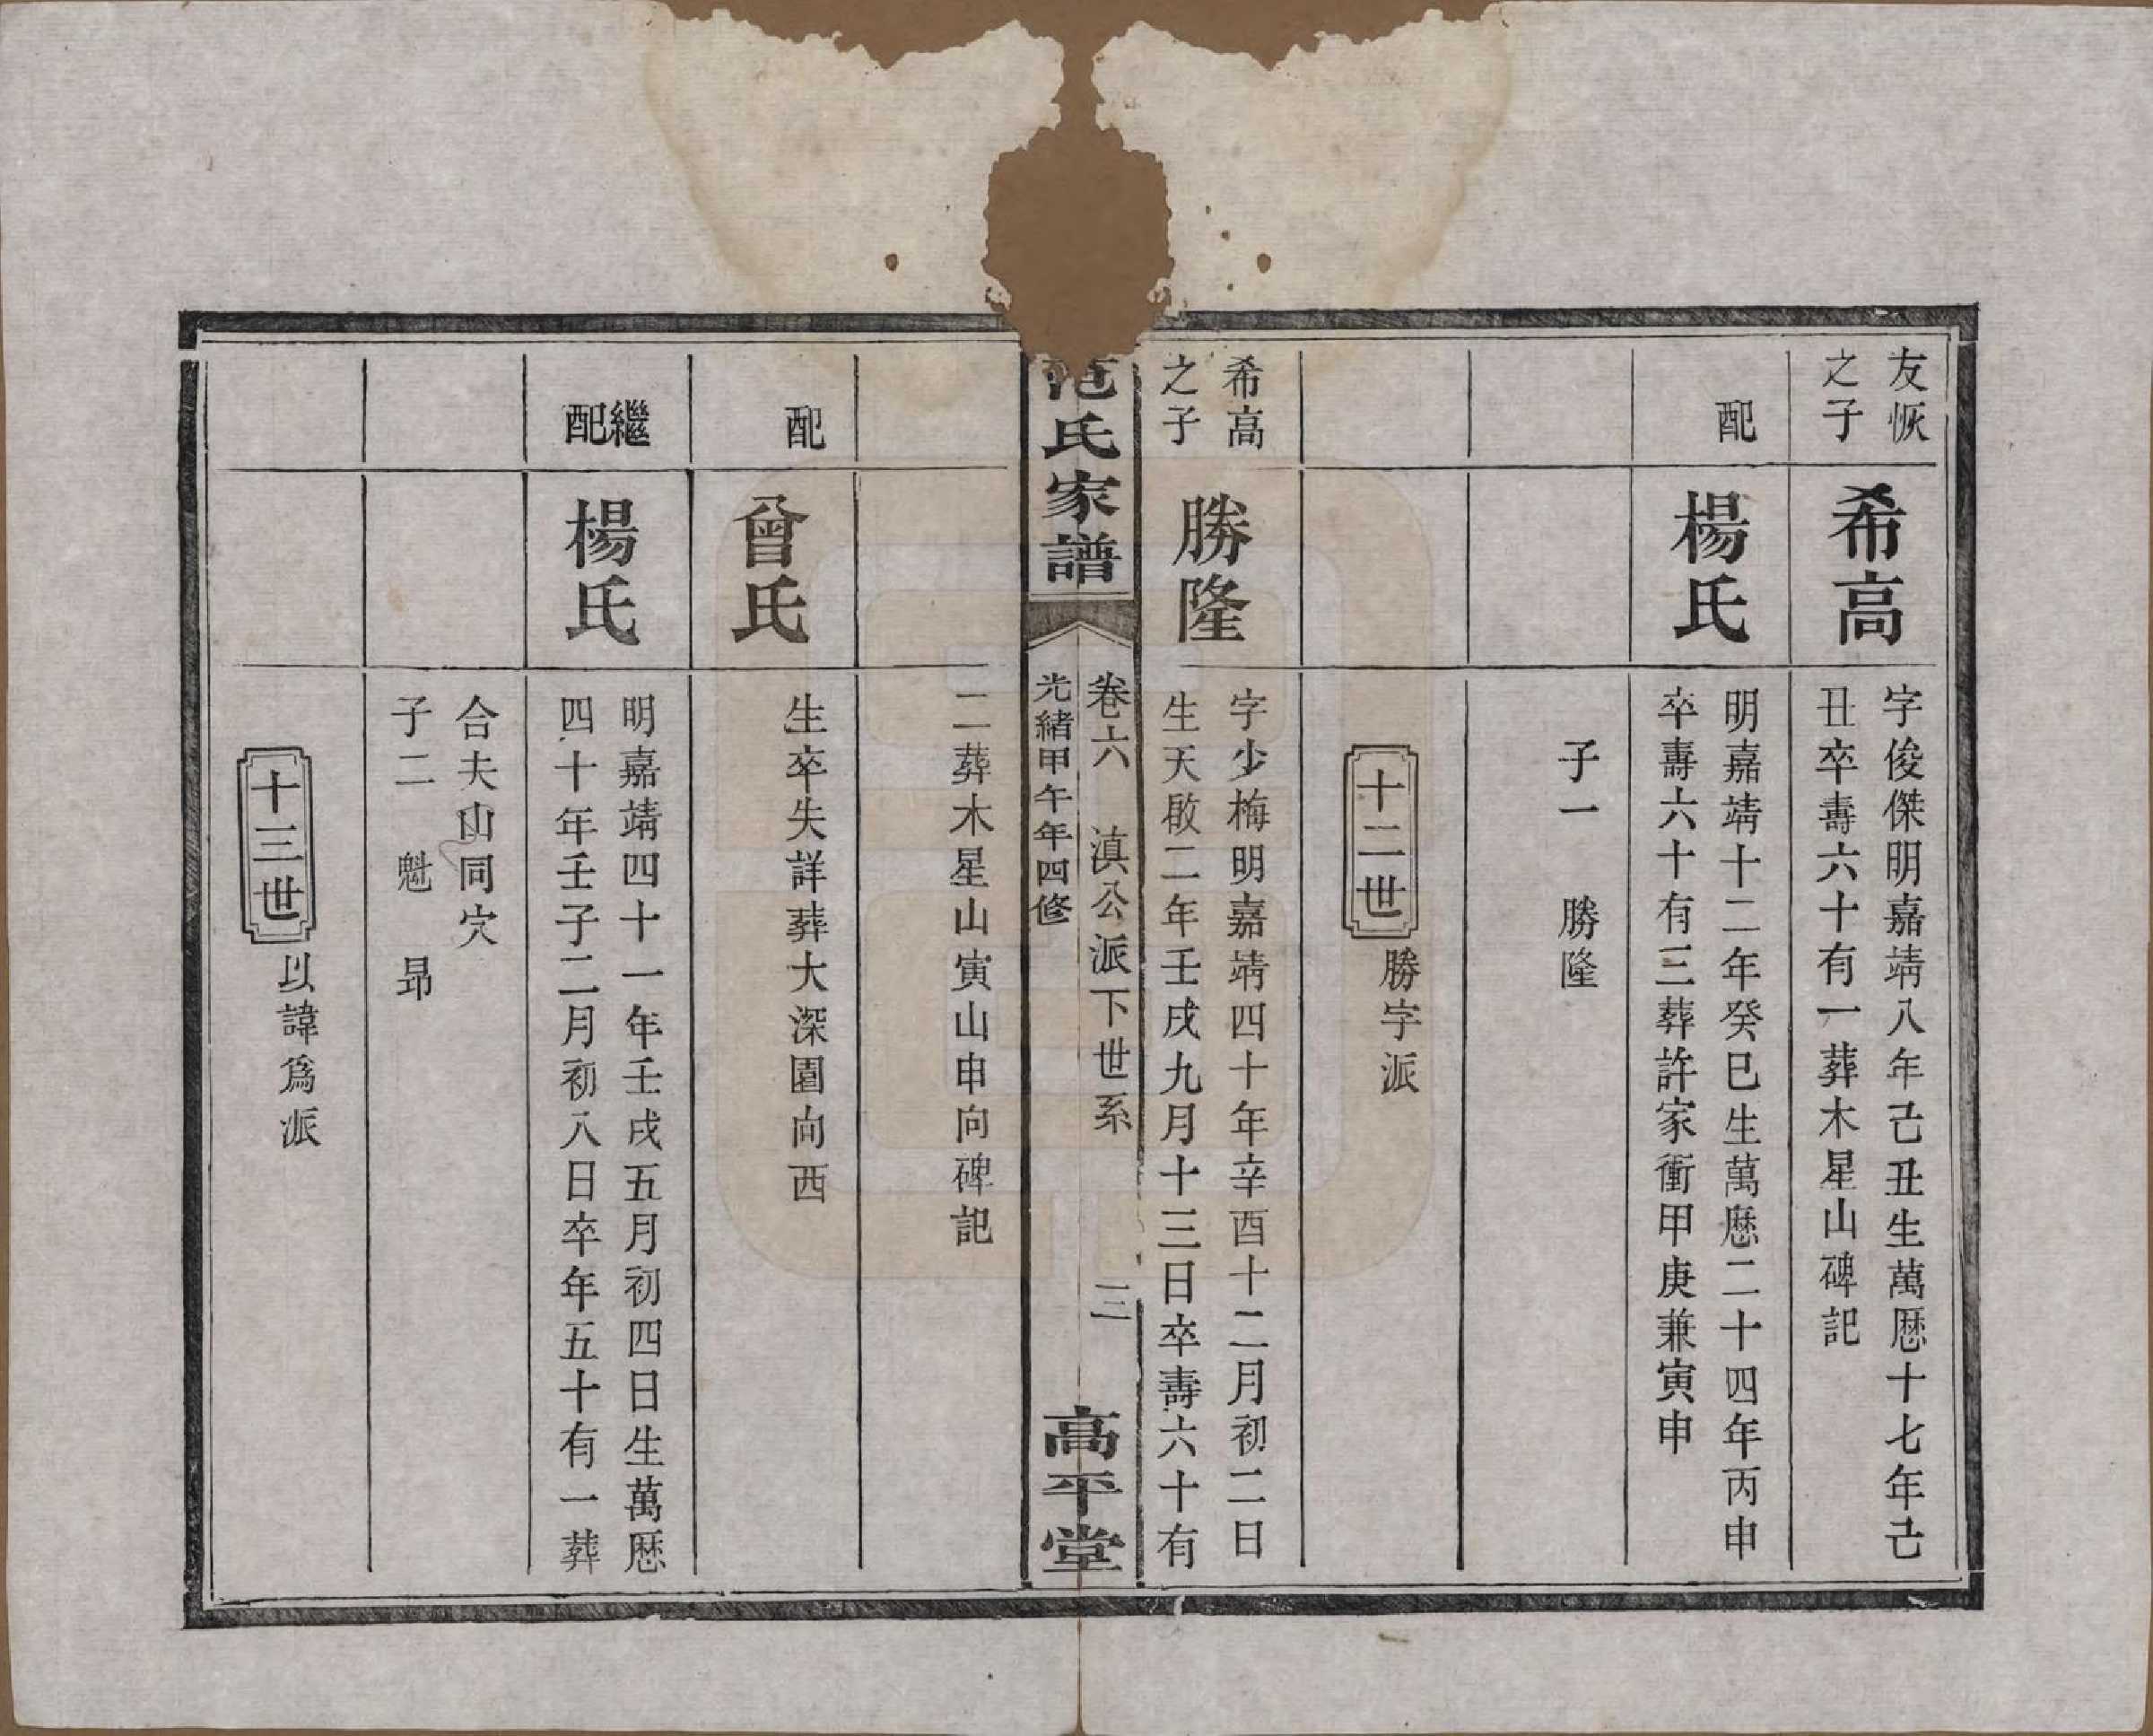 友恢
之子
希高
字俊傑明嘉靖八年己丑生萬歷十七年己
丑卒壽六十有一葬木星山碑記
配
楊氏
明嘉靖十二年癸巳生萬歷二十四年丙申
卒壽六十有三葬許家衝甲庚兼寅申
子一　勝隆
十二世
勝字派
希高
之子
勝隆
字少梅明嘉靖四十年辛酉十二月初二日
生天啟二年壬戌九月十三日卒壽六十有
范氏家譜
卷六　滇公派下世系　三
光緒甲午年四修
高平堂
二葬木星山寅山申向碑記
配
曾氏
生卒失詳葬大深園向西
繼
配
楊氏
明嘉靖四十一年壬戌五月初四日生萬歷
四十年壬子二月初八日卒年五十有一葬
合夫山同穴
子二　魁　昻
十三世
以諱為派